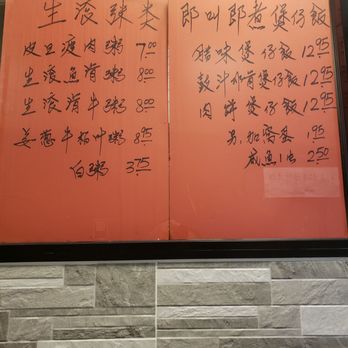 生滾粥类
皮旦瘦肉粥 7.00
生滚魚滑粥 8.00
生滚滑牛粥 8.00
姜葱牛柏叶粥 8.95
白粥 3.75
即叫即煮煲仔飯
腊味煲仔飯 12.95
豉汁排骨煲仔飯 12.95
肉餅煲仔飯 12.95
另加窝蛋 1.95
咸魚1古 2.50